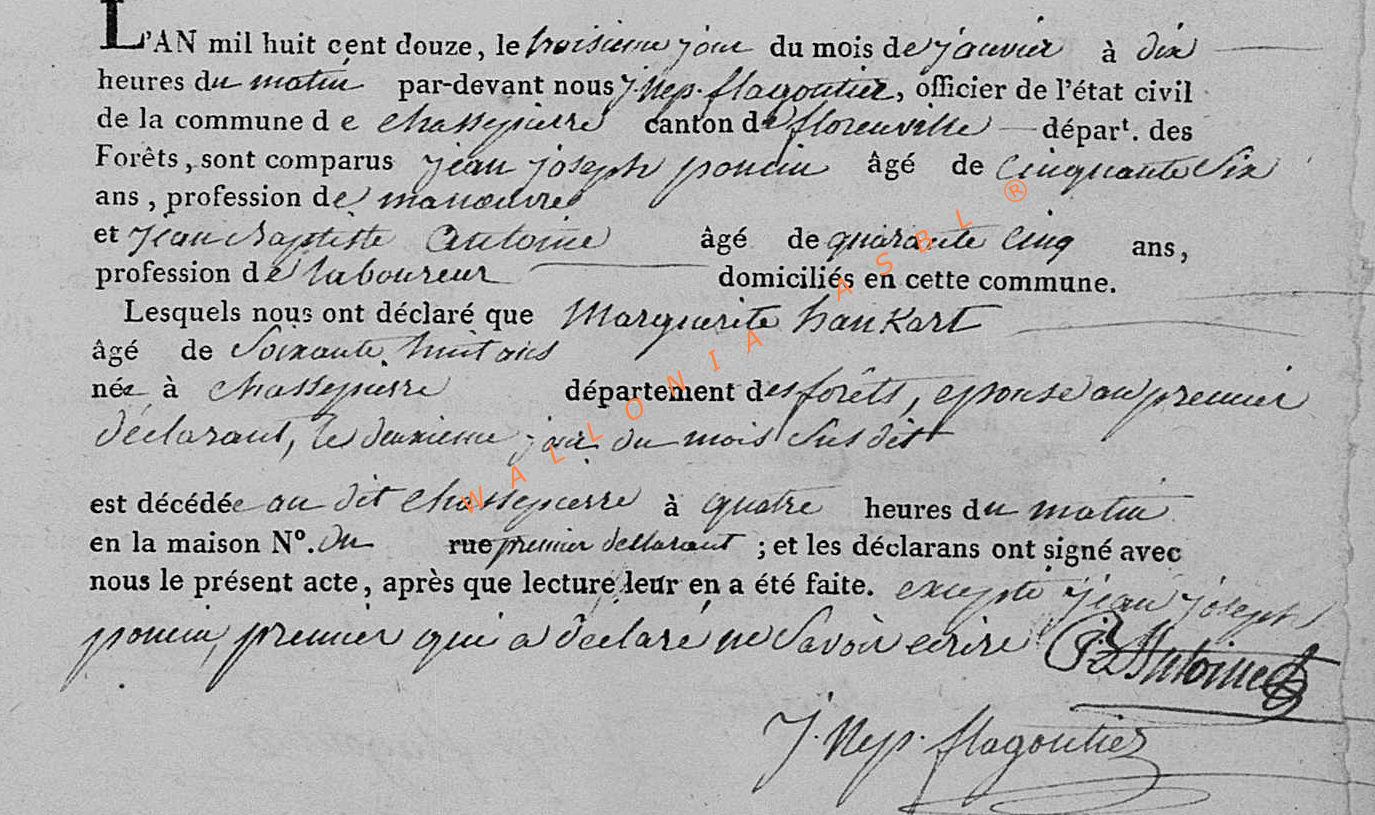 L'AN mil huit cent douze, le troisieme jour du mois de janvier à dix
heures du matin par-devant nous J. Nep. flagoutier, officier de l'état civil
de la commune de chassepierre canton de florenville départ. des
Forêts, sont comparus jean joseph poncin âgé de cinquante Six
ans, profession de manœuvre
et jean Baptiste Antoine âgé de quarante cinq ans,
profession de laboureur domiciliés en cette commune.
Lesquels nous ont déclaré que Marguerite hankart
âgé de Soixante huit ans
née à chassepierre département des forêts, epouse au premier
déclarant, le deuxieme jour du mois Susdit
est décédée au dit chassepierre à quatre heures du matin
en la maison N°. du rue premier decllarant ; et les déclarans ont signé avec
nous le présent acte, après que lecture leur en a été faite. excepte jean joseph
poncin, premier qui a déclaré ne Savoir ecrire JB Antoine
J. Nep. flagoutier
WALLONIA ASBL ®